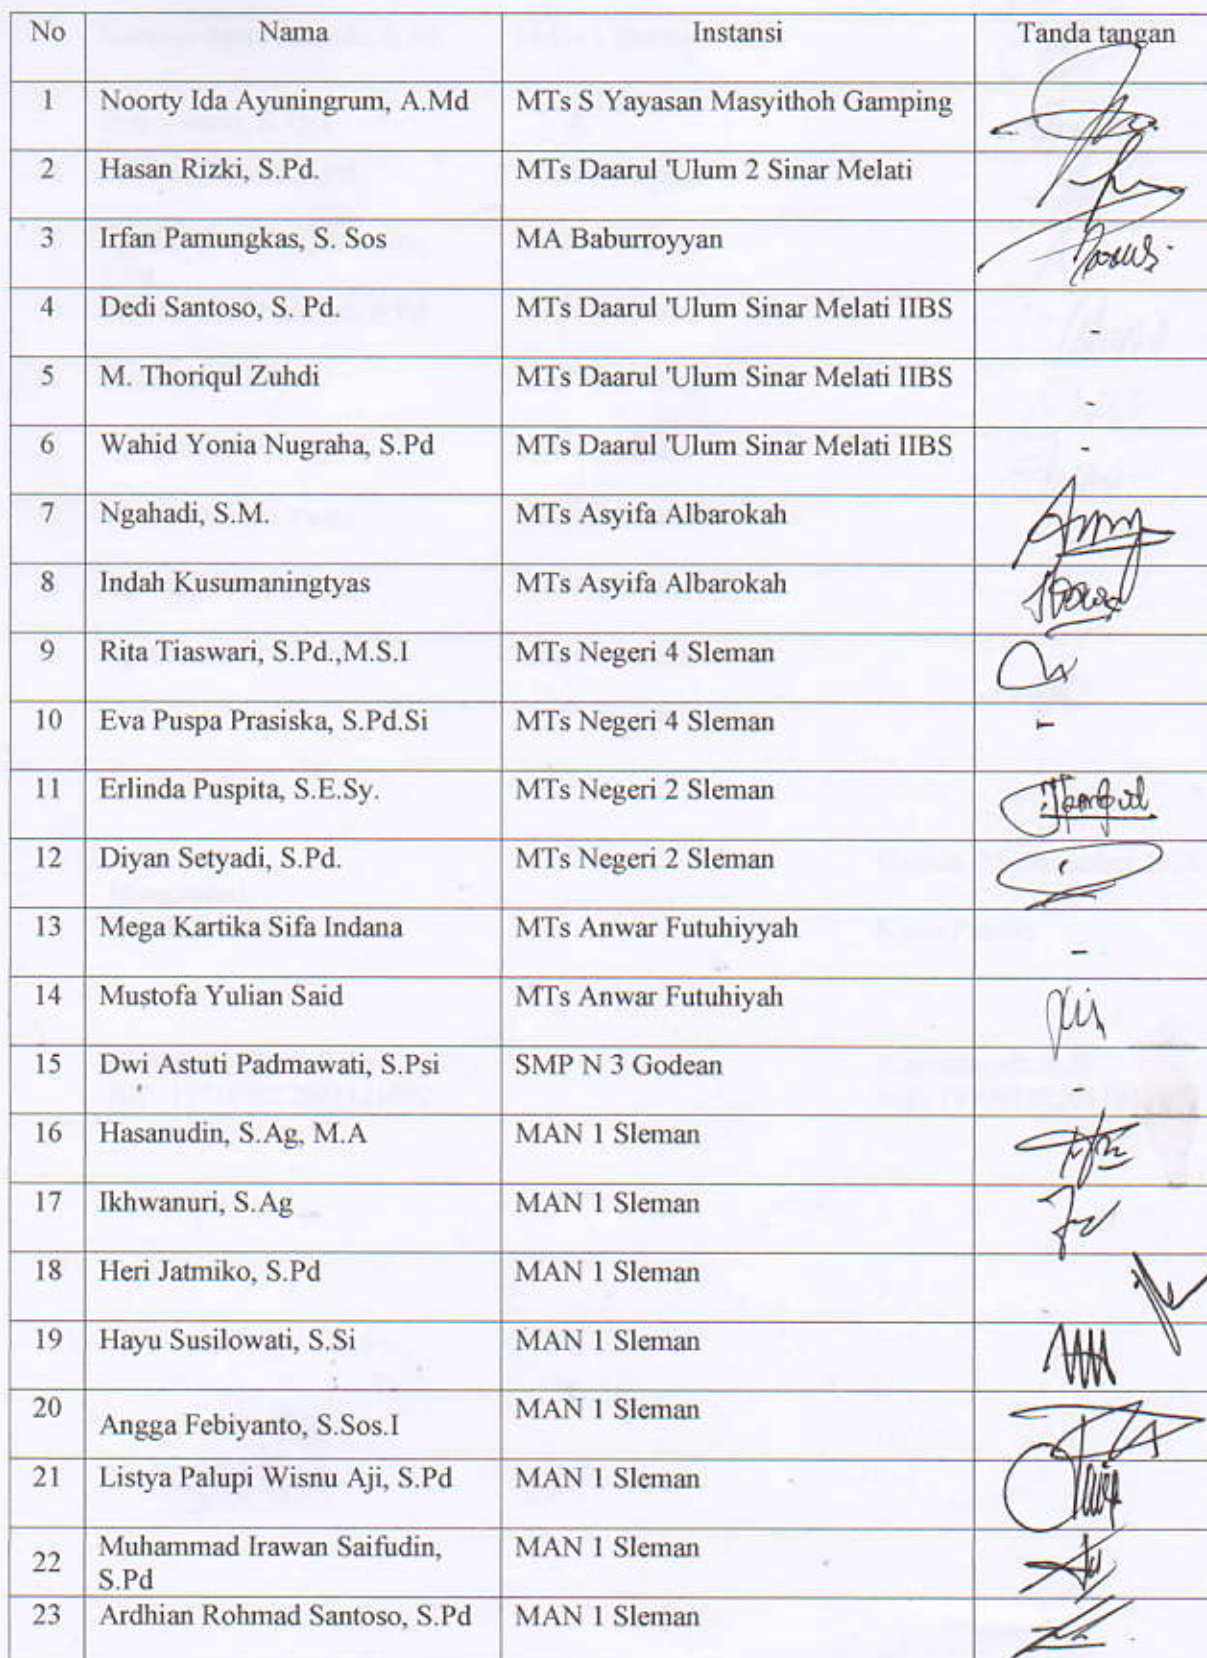 No Nama Instansi Tanda tangan
1 Noorty Ida Ayuningrum, A.Md MTs S Yayasan Masyithoh Gamping
2 Hasan Rizki, S.Pd. MTs Daarul 'Ulum 2 Sinar Melati
3 Irfan Pamungkas, S. Sos MA Baburroyyan
4 Dedi Santoso, S. Pd. MTs Daarul 'Ulum Sinar Melati IIBS -
5 M. Thoriqul Zuhdi MTs Daarul 'Ulum Sinar Melati IIBS -
6 Wahid Yonia Nugraha, S.Pd MTs Daarul 'Ulum Sinar Melati IIBS -
7 Ngahadi, S.M. MTs Asyifa Albarokah
8 Indah Kusumaningtyas MTs Asyifa Albarokah
9 Rita Tiaswari, S.Pd.,M.S.I MTs Negeri 4 Sleman
10 Eva Puspa Prasiska, S.Pd.Si MTs Negeri 4 Sleman -
11 Erlinda Puspita, S.E.Sy. MTs Negeri 2 Sleman
12 Diyan Setyadi, S.Pd. MTs Negeri 2 Sleman
13 Mega Kartika Sifa Indana MTs Anwar Futuhiyyah -
14 Mustofa Yulian Said MTs Anwar Futuhiyah
15 Dwi Astuti Padmawati, S.Psi SMP N 3 Godean -
16 Hasanudin, S.Ag, M.A MAN 1 Sleman
17 Ikhwanuri, S.Ag MAN 1 Sleman
18 Heri Jatmiko, S.Pd MAN 1 Sleman
19 Hayu Susilowati, S.Si MAN 1 Sleman
20 Angga Febiyanto, S.Sos.I MAN 1 Sleman
21 Listya Palupi Wisnu Aji, S.Pd MAN 1 Sleman
22 Muhammad Irawan Saifudin, MAN 1 Sleman
S.Pd
23 Ardhian Rohmad Santoso, S.Pd MAN 1 Sleman